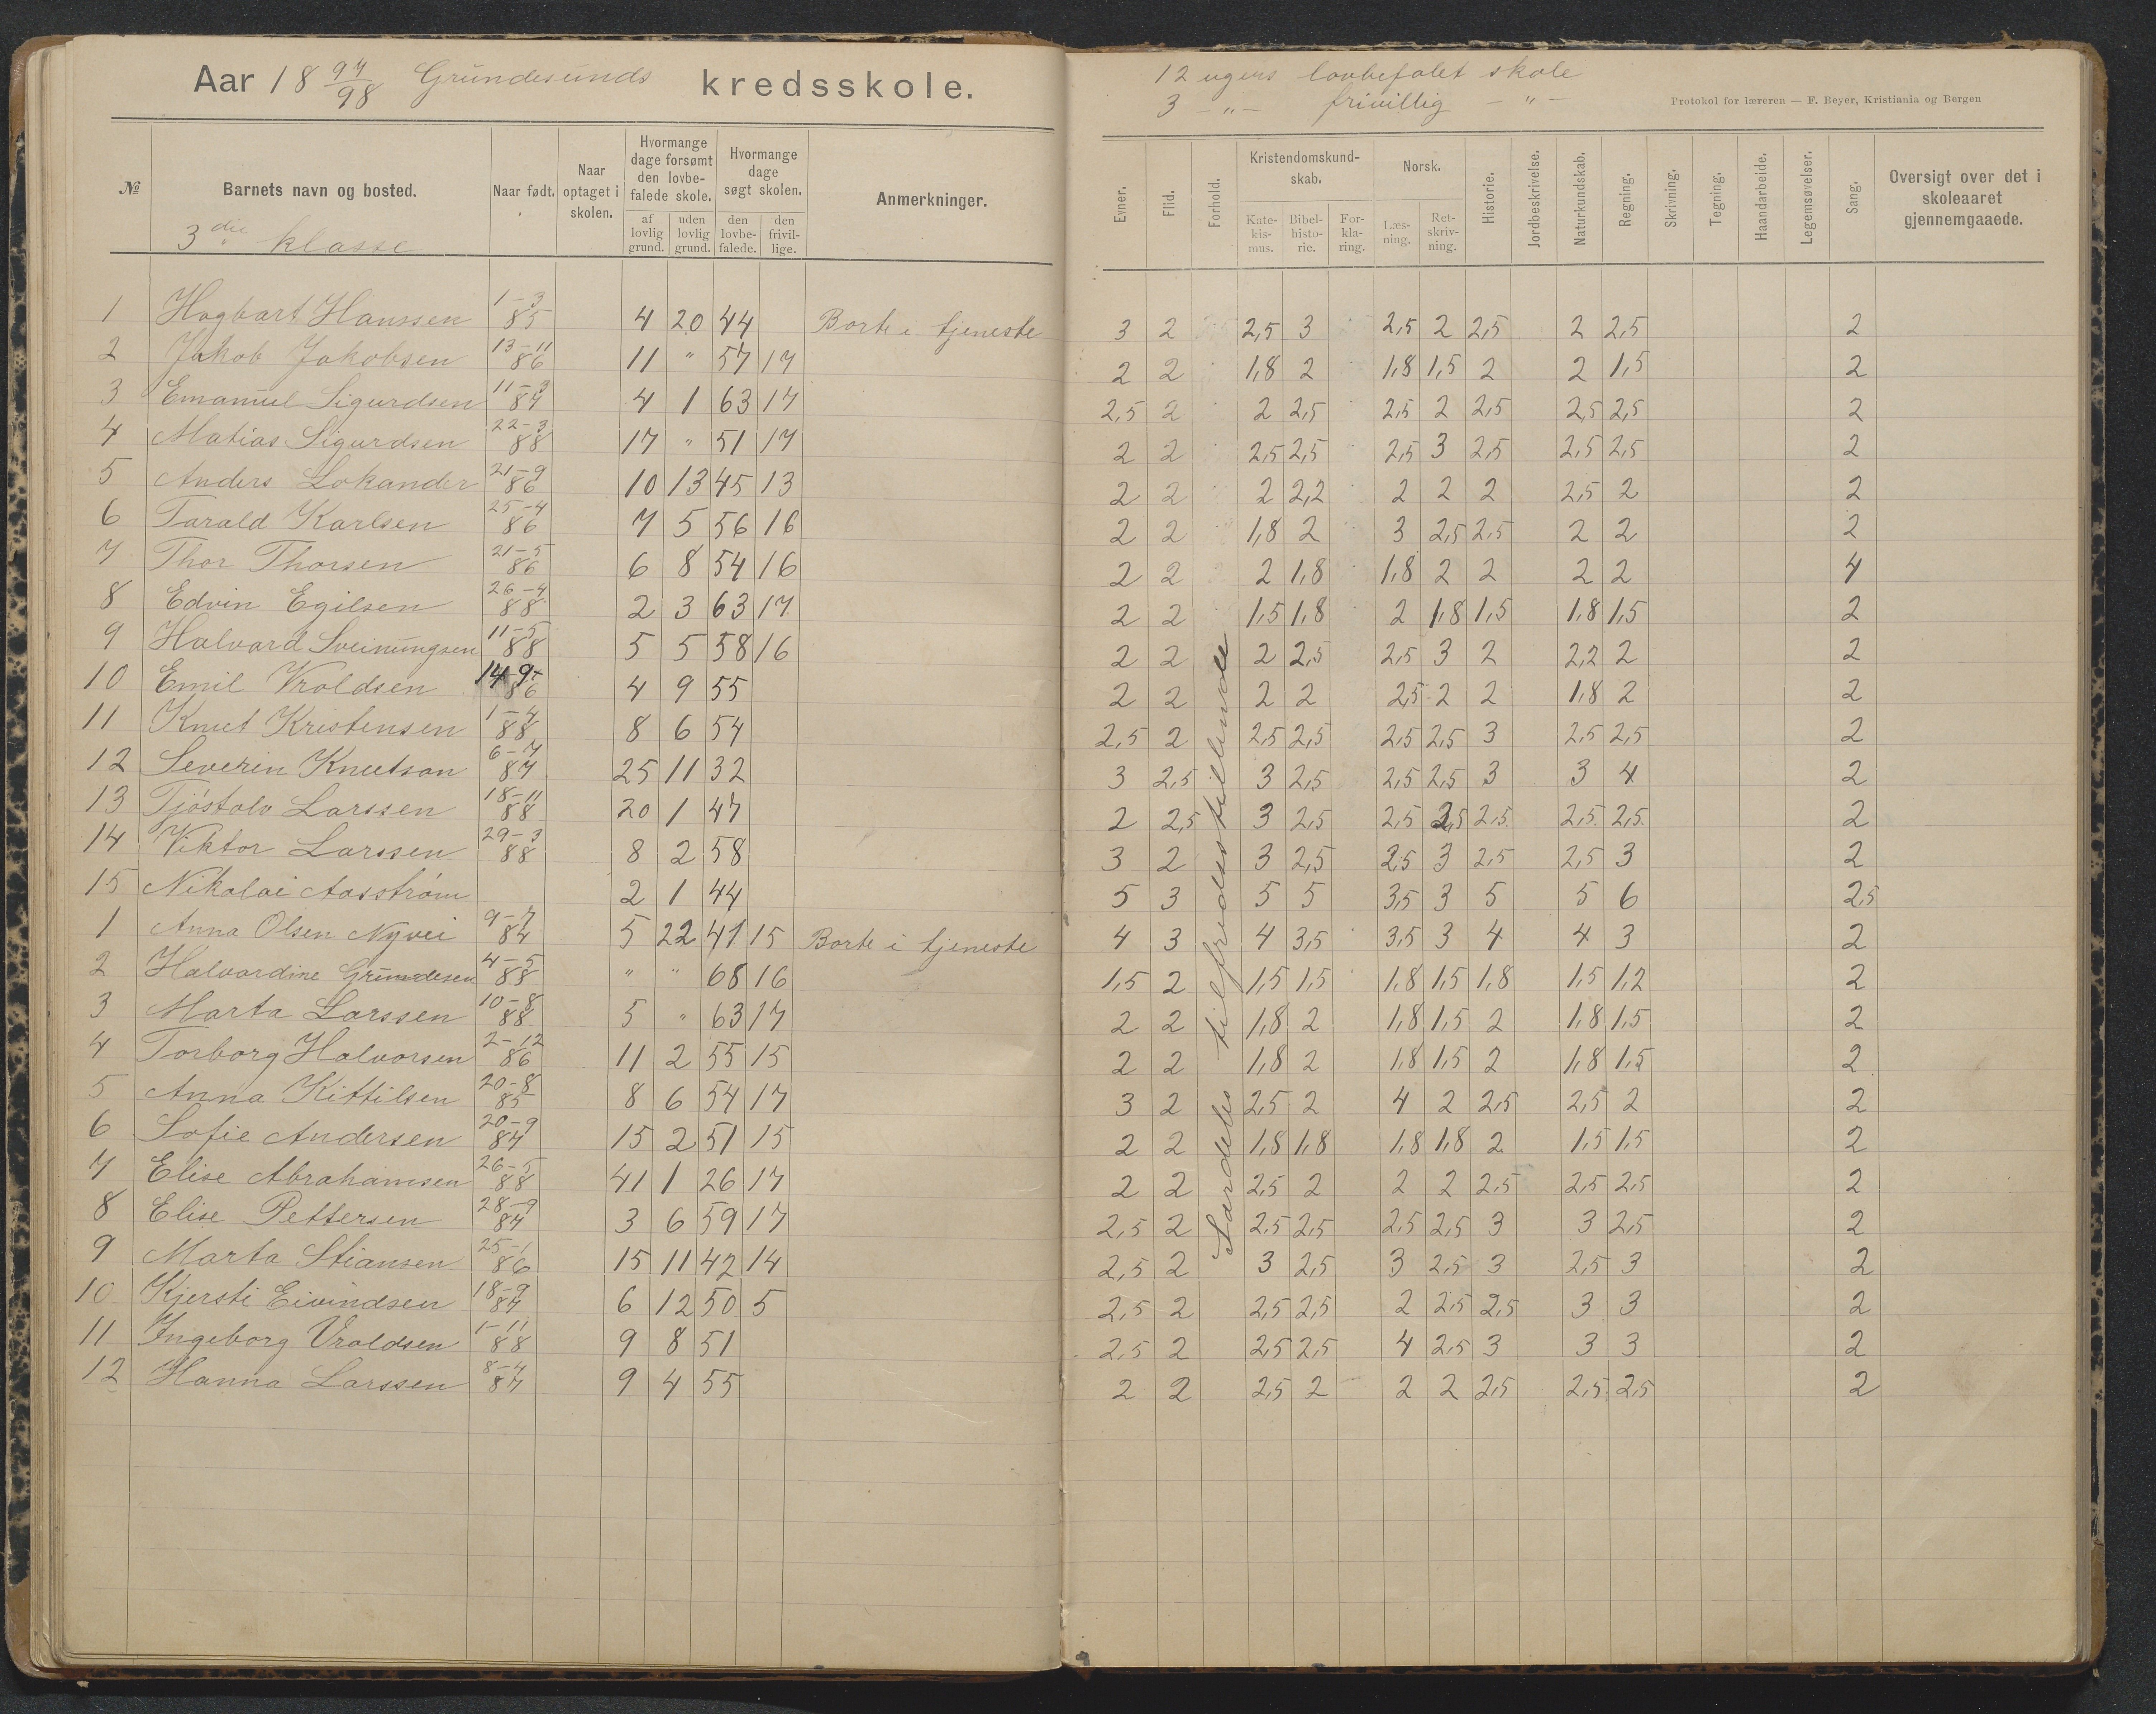 Aar 18 97/98 Grundesunds kredsskole.
№ | Barnets navn og bosted. | Naar født. | Naar optaget i skolen. | Hvormange dage forsømt den lovbefalede skole. af lovlig grund. | uden lovlig grund. | Hvormange dage søgt skolen. den lovbefalede. | den frivillige. | Anmerkninger.
3die klasse
1 Hagbart Hanssen 1-3 85 4 20 44 Borte i tjeneste
2 Jakob Jakobsen 13-11 86 11 " 57 17
3 Emanuel Sigurdsen 11-3 87 4 1 63 17
4 Matias Sigurdsen 22-3 88 17 " 51 17
5 Anders Lokander 21-9 86 10 13 45 13
6 Tarald Karlsen 25-4 86 7 5 56 16
7 Thor Thorsen 21-5 86 6 8 54 16
8 Edvin Egilsen 26-4 88 2 3 63 17
9 Halvard Sveinungsen 11-5 88 5 5 58 16
10 Emil Vroldsen 14-9 86 4 9 55
11 Knut Kristensen 1-4 88 8 6 54
12 Severin Knutson 6-7 87 25 11 32
13 Tjöstolv Larssen 18-11 88 20 1 47
14 Viktor Larssen 29-3 88 8 2 58
15 Nikolai Aasström 2 1 44
1 Anna Olsen Nyvei 9-7 84 5 22 41 15 Borte i tjeneste
2 Halvardine Grundesen 4-5 88 " " 68 16
3 Marta Larssen 10-8 88 5 " 63 17
4 Torborg Halvorsen 2-12 86 11 2 55 15
5 Anna Kittilsen 20-8 85 8 6 54 17
6 Sofie Andersen 20-9 87 15 2 51 15
7 Elise Abrahamsen 26-5 88 41 1 26 17
8 Elise Pettersen 28-9 87 3 6 59 17
9 Marta Stiansen 25-1 86 15 11 42 14
10 Kjersti Eivindsen 18-9 87 6 12 50 5
11 Ingeborg Vroldsen 1-11 88 9 8 51
12 Hanna Larssen 8-4 87 9 4 55
12 ugers lovbefalet skole
3 -"- frivillig -"-
Protokol for læreren — F. Beyer, Kristiania og Bergen
Evner. | Flid. | Forhold. | Kristendomskundskab. Katekismus. | Bibelhistorie. | Forklaring. | Norsk. Læsning. | Retskrivning. | Historie. | Jordbeskrivelse. | Naturkundskab. | Regning. | Skrivning. | Tegning. | Haandarbeide. | Legemsøvelser. | Sang. | Oversigt over det i skoleaaret gjennemgaaede.
Særdeles tilfredsstillende
3 2 2,5 3 2,5 2 2,5 2 2,5 2
2 2 1,8 2 1,8 1,5 2 2 1,5 2
2,5 2 2 2,5 2,5 2 2,5 2,5 2,5 2
2 2 2,5 2,5 2,5 3 2,5 2,5 2,5 2
2 2 2 2,2 2 2 2 2,5 2 2
2 2 1,8 2 3 2,5 2,5 2 2 2
2 2 2 1,8 1,8 2 2 2 2 4
2 2 1,5 1,8 2 1,8 1,5 1,8 1,5 2
2 2 2 2,5 2,5 3 2 2,2 2 2
2 2 2 2 2,5 2 2 1,8 2 2
2,5 2 2,5 2,5 2,5 2,5 3 2,5 2,5 2
3 2,5 3 2,5 2,5 2,5 3 3 4 2
2 2,5 3 2,5 2,5 2,5 2,5 2,5 2,5 2
3 2 3 2,5 2,5 3 2,5 2,5 3 2
5 3 5 5 3,5 3 5 5 6 2,5
4 3 4 3,5 3,5 3 4 4 3 2
1,5 2 1,5 1,5 1,8 1,5 1,8 1,5 1,2 2
2 2 1,8 2 1,8 1,5 2 1,8 1,5 2
2 2 1,8 2 1,8 1,5 2 1,8 1,5 2
3 2 2,5 2 4 2 2,5 2,5 2 2
2 2 1,8 1,8 1,8 1,8 2 1,5 1,5 2
2 2 2,5 2 2 2 2,5 2,5 2,5 2
2,5 2 2,5 2,5 2,5 2,5 3 3 2,5 2
2,5 2 3 2,5 3 2,5 3 2,5 3 2
2,5 2 2,5 2,5 2 2,5 2,5 3 3 2
2,5 2 2,5 2,5 4 2,5 3 3 3 2
2 2 2,5 2 2 2 2,5 2,5 2,5 2